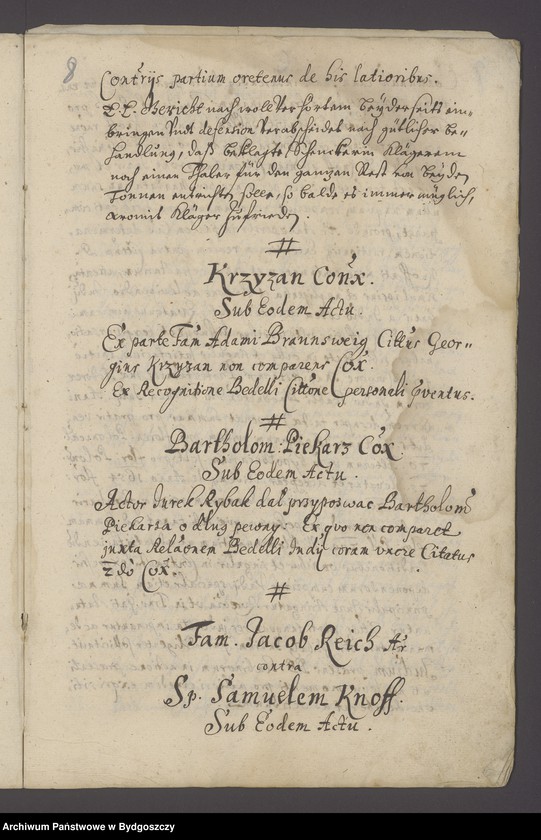 8
Contrijs partium oretenus de his latioribus.
E. E. Gericht nach wollverhörtem beyderseits ein-
bringen undt defension verabscheidet nach gütlicher be-
handlung, daß beklagte Schenckerin Klägerem
noch einen Thaler für den gantzen Rest von beyden
Tonnen entrichten solle, so balde es immer müglich,
womit Kläger zufrieden.
#
Krzyzan Conx.
Sub Eodem Actu.
Ex parte Fam Adami Braunsweig Cittus Geor-
gius Krzyzan non comparens Cox.
Ex Recognitione Bedelli Cittone personali pventus.
#
Bartholom: Piekarz Cox
Sub Eodem Actu.
Actor Jurek Rybak dał przyposwac Bartholom
Piekarza o dług pewny: Ex quo non comparet
juxta Relaonem Bedelli Indij coram uxore Citatus
2do Cox.
#
Fam. Jacob Reich Ar
contra
Sp. Samuelem Knoff.
Sub Eodem Actu.
Archiwum Państwowe w Bydgoszczy